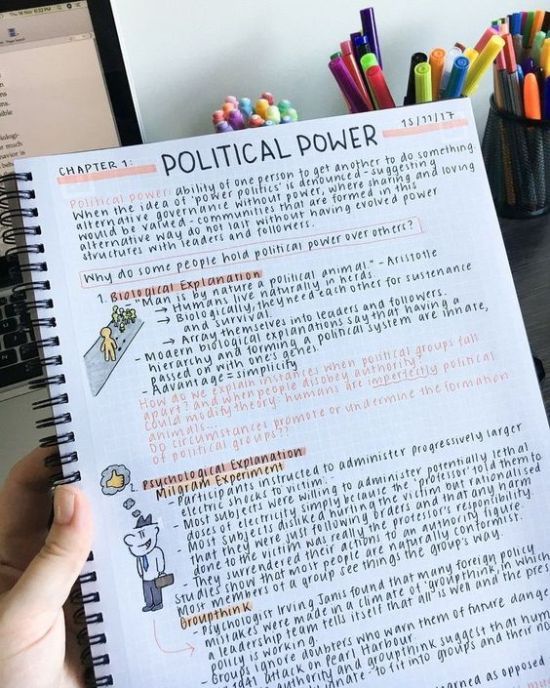 CHAPTER 1:
POLITICAL POWER
15/11/17
Political power: ability of one person to get another to do something.
When the idea of 'power politics' is denounced - suggesting
alternative governance without power, where sharing and loving
would be valued - communities that are formed on this
alternative way do not last without having evolved power
structures with leaders and followers.
Why do some people hold political power over others?
1. Biological Explanation
- "Man is by nature a political animal." - Aristotle
→ Humans live naturally in herds.
→ Biologically, they need each other for sustenance
and survival.
→ Array themselves into leaders and followers.
- Modern biological explanations say that having a
hierarchy and forming a political system are innate,
passed on with one's genes.
- Advantage = simplicity
How do we explain instances when political groups fall
apart? and when people disobey authority?
Could modify theory: humans are imperfectly political
animals...
Do circumstances promote or undermine the formation
of political groups??
2. Psychological Explanation
Milgram Experiment
- Participants instructed to administer progressively larger
electric shocks to victim.
- Most subjects were willing to administer potentially lethal
doses of electricity simply because the 'professor' told them to
- Most subjects disliked hurting the victim but rationalised
that they were just following orders and that any harm
done to the victim was really the professor's responsibility.
- They surrendered their actions to an authority figure.
Studies show that most people are naturally conformist.
Most members of a group see things the group's way.
Groupthink
- Psychologist Irving Janis found that many foreign policy
mistakes were made in a climate of 'groupthink', in which
a leadership team tells itself that all is well and the pres
policy is working.
- Groups ignore doubters who warn them of future dange
1941 attack on Pearl Harbour.
authority and groupthink suggest that hum
innate - to fit into groups and their no
as opposed